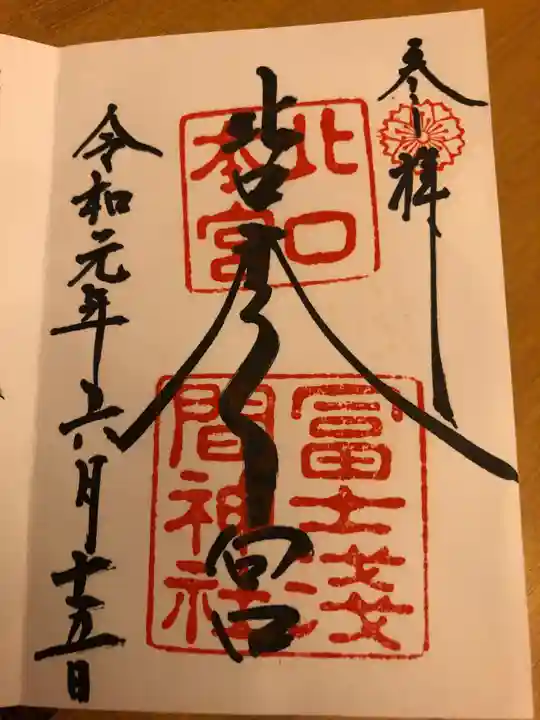 参拝
北口
本宮
北口本宮
冨士淺
間神社
令和元年六月十五日